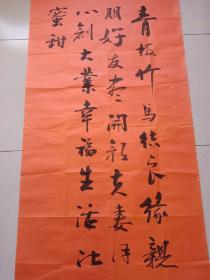 青梅竹马结良缘亲
朋好友尽开颜夫妻同
心创大业幸福生活比
蜜甜